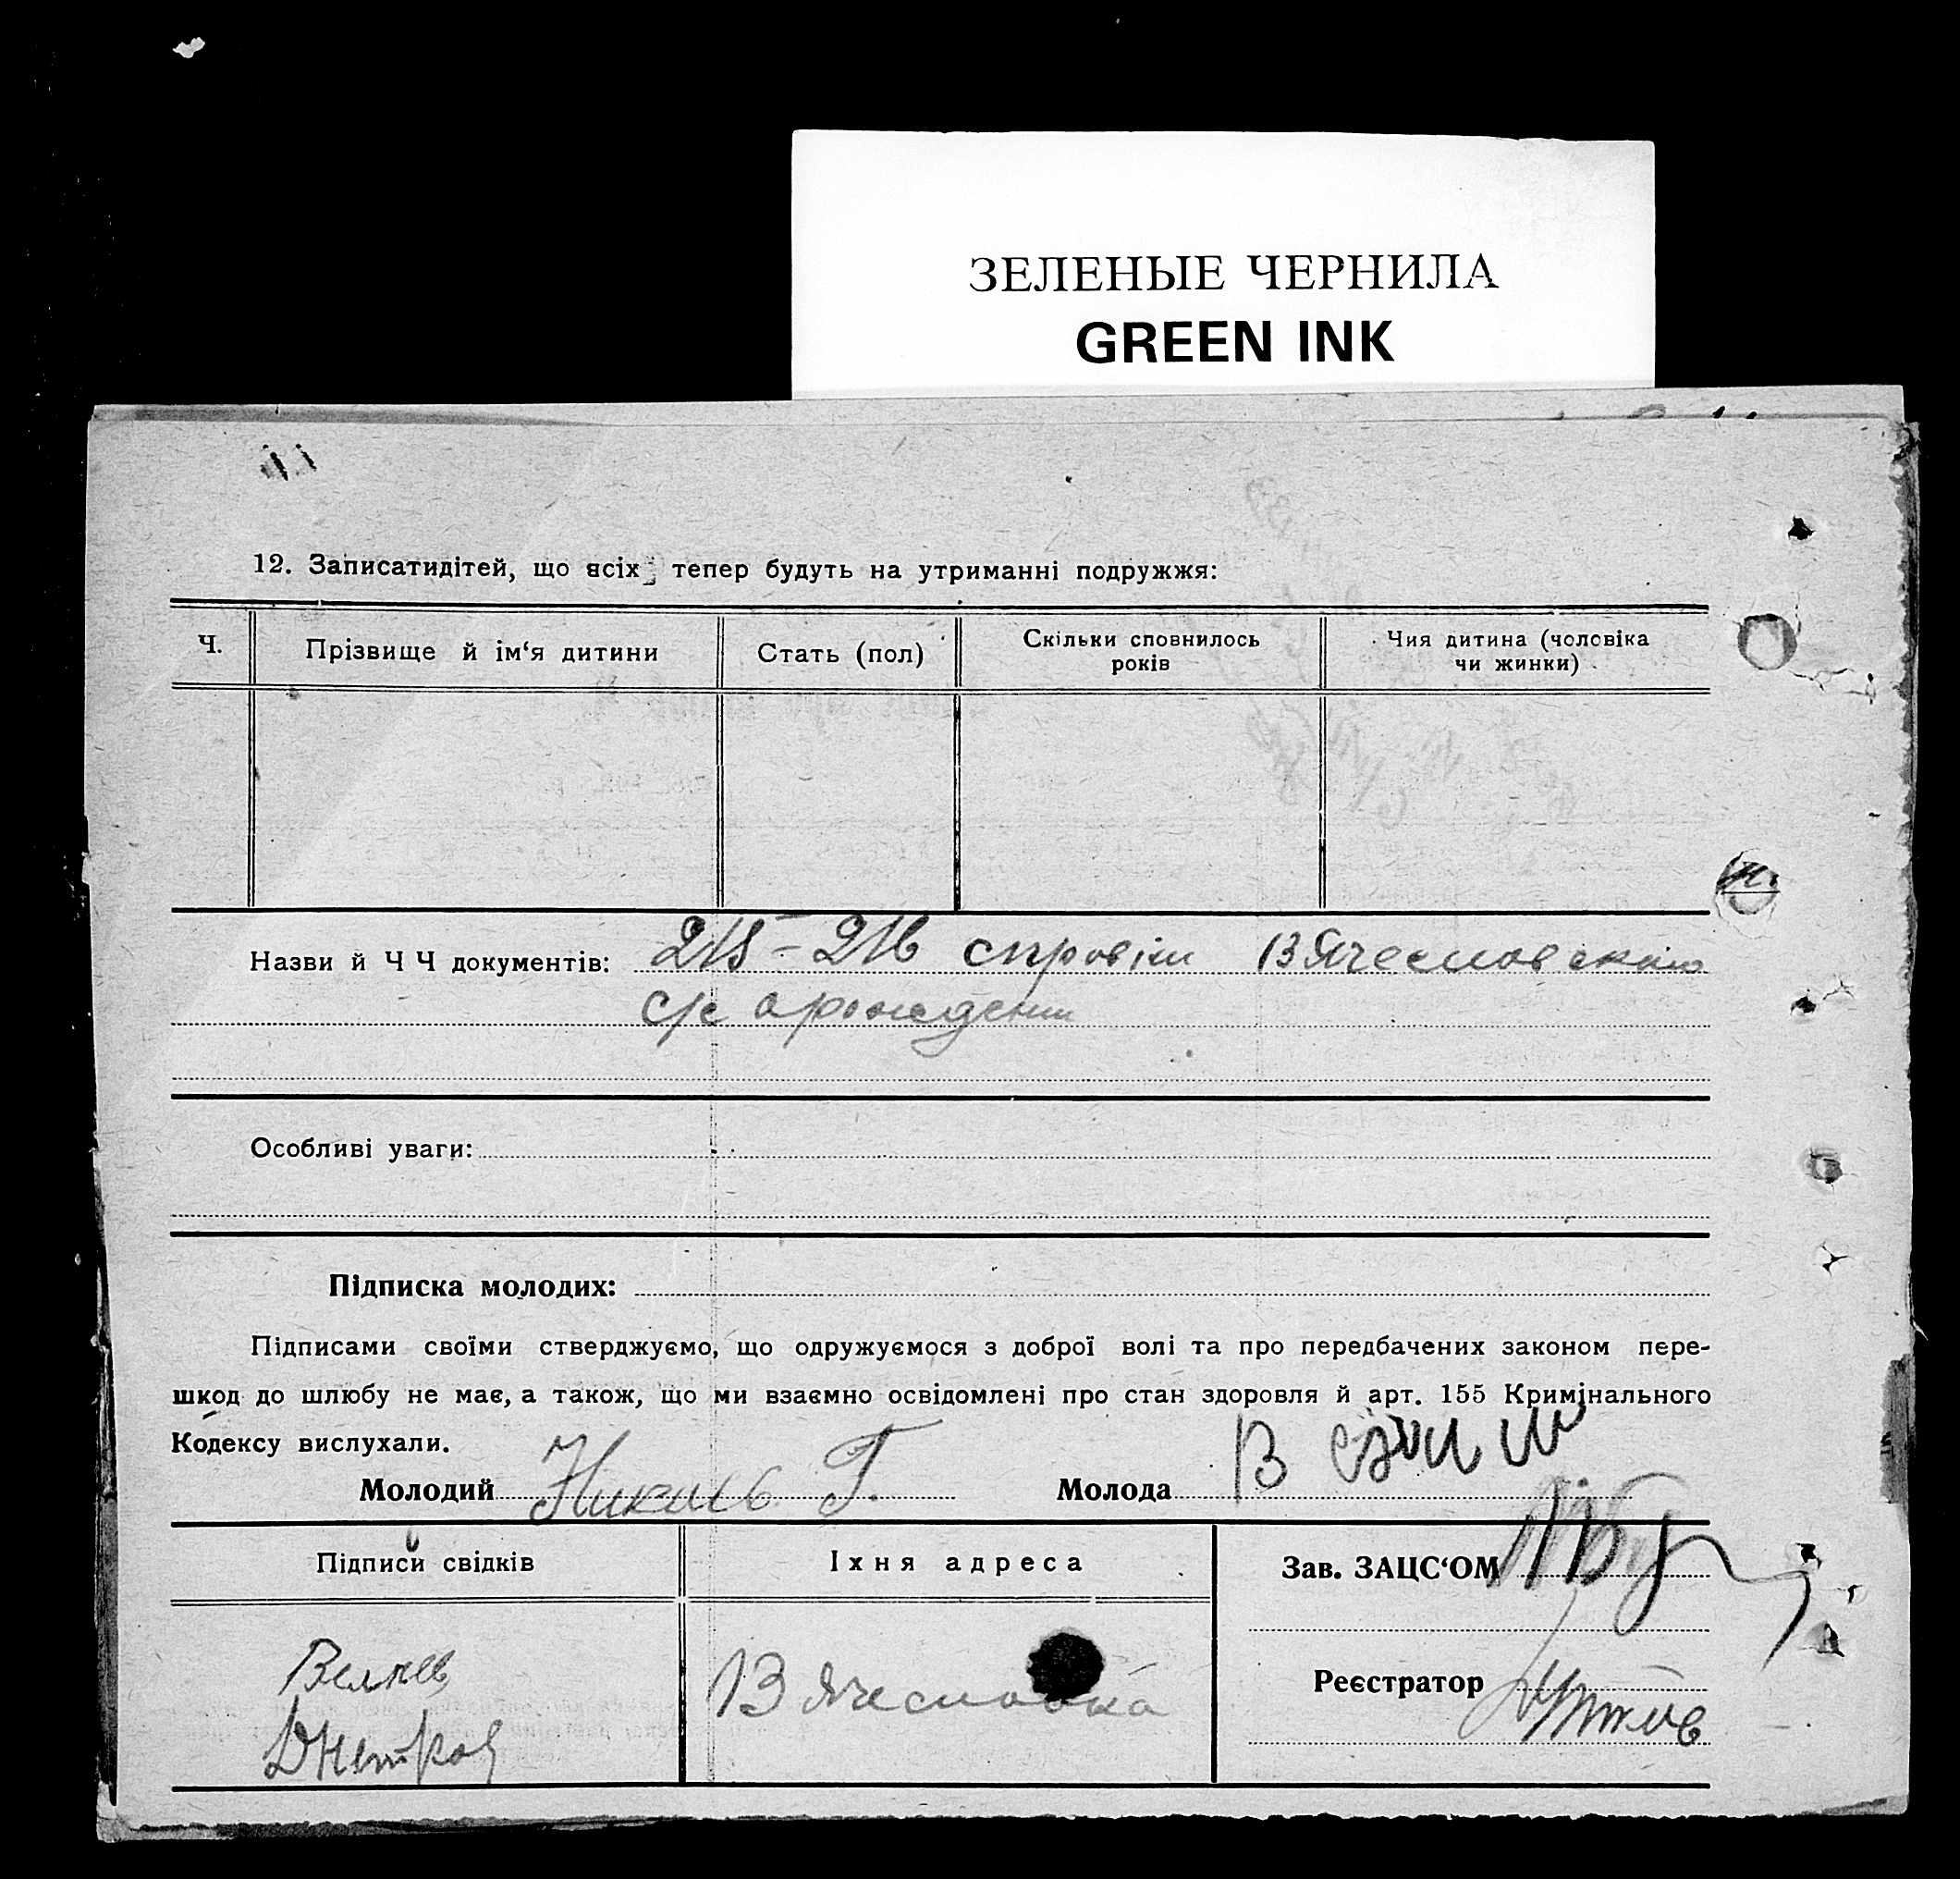 ЗЕЛЕНЫЕ ЧЕРНИЛА
GREEN INK
12. Записатидітей, що всіх тепер будуть на утриманні подружжя:
Ч.
Прізвище й ім‘я дитини
Стать (пол)
Скільки сповнилось
років
Чия дитина (чоловіка
чи жинки)
Назви й Ч Ч документів: 215-216
с/с
Особливі уваги:
Підписка молодих:
Підписами своїми стверджуємо, що одружуємося з доброї волі та про передбачених законом пере-
шкод до шлюбу не має, а також, що ми взаємно освідомлені про стан здоровля й арт. 155 Кримінального
Кодексу вислухали.
Молодий Г.
Молода
Підписи свідків
Іхня адреса
Зав. ЗАЦС‘ОМ
Реєстратор